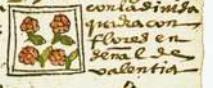 con la diuisa
quadra con
flores en
señal de
valentia